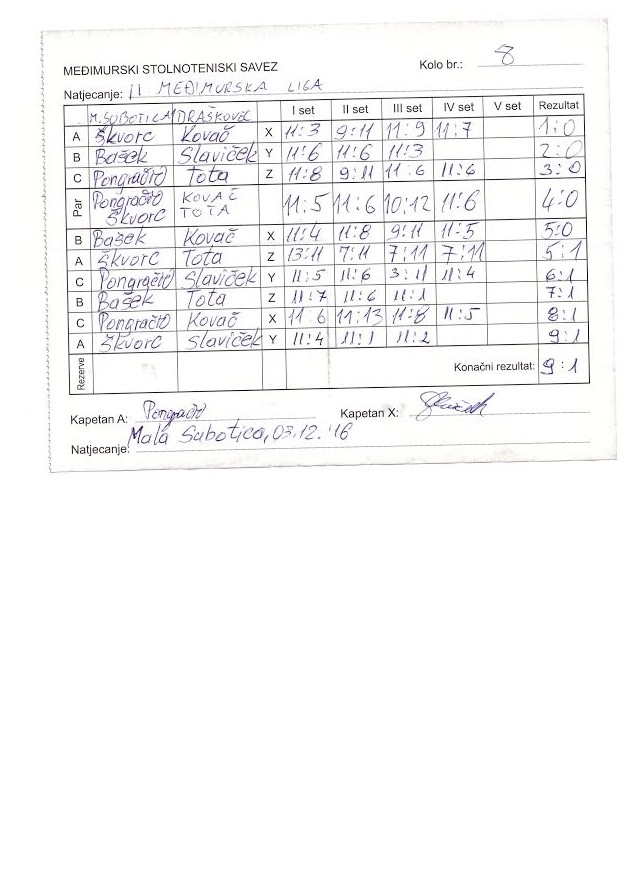 MEĐIMURSKI STOLNOTENISKI SAVEZ Kolo br.: 8
Natjecanje: II MEĐIMURSKA LIGA
M. SUBOTICA DRAŠKOVEC I set II set III set IV set V set Rezultat
A Škvorc Kovač X 11:3 9:11 11:9 11:7 1:0
B Bašek Slaviček Y 11:6 11:6 11:3 2:0
C Pongračić Tota Z 11:8 9:11 11:6 11:6 3:0
Par Pongračić Škvorc KOVAČ TOTA 11:5 11:6 10:12 11:6 4:0
B Bašek Kovač X 11:4 11:8 9:11 11:5 5:0
A Škvorc Tota Z 13:11 7:11 7:11 7:11 5:1
C Pongračić Slaviček Y 11:5 11:6 3:11 11:4 6:1
B Bašek Tota Z 11:7 11:6 11:1 7:1
C Pongračić Kovač X 11:6 11:13 11:8 11:5 8:1
A Škvorc Slaviček Y 11:4 11:1 11:2 9:1
Rezerve Konačni rezultat: 9:1
Kapetan A: Pongračić Kapetan X:
Mala Subotica, 03.12.'16
Natjecanje: